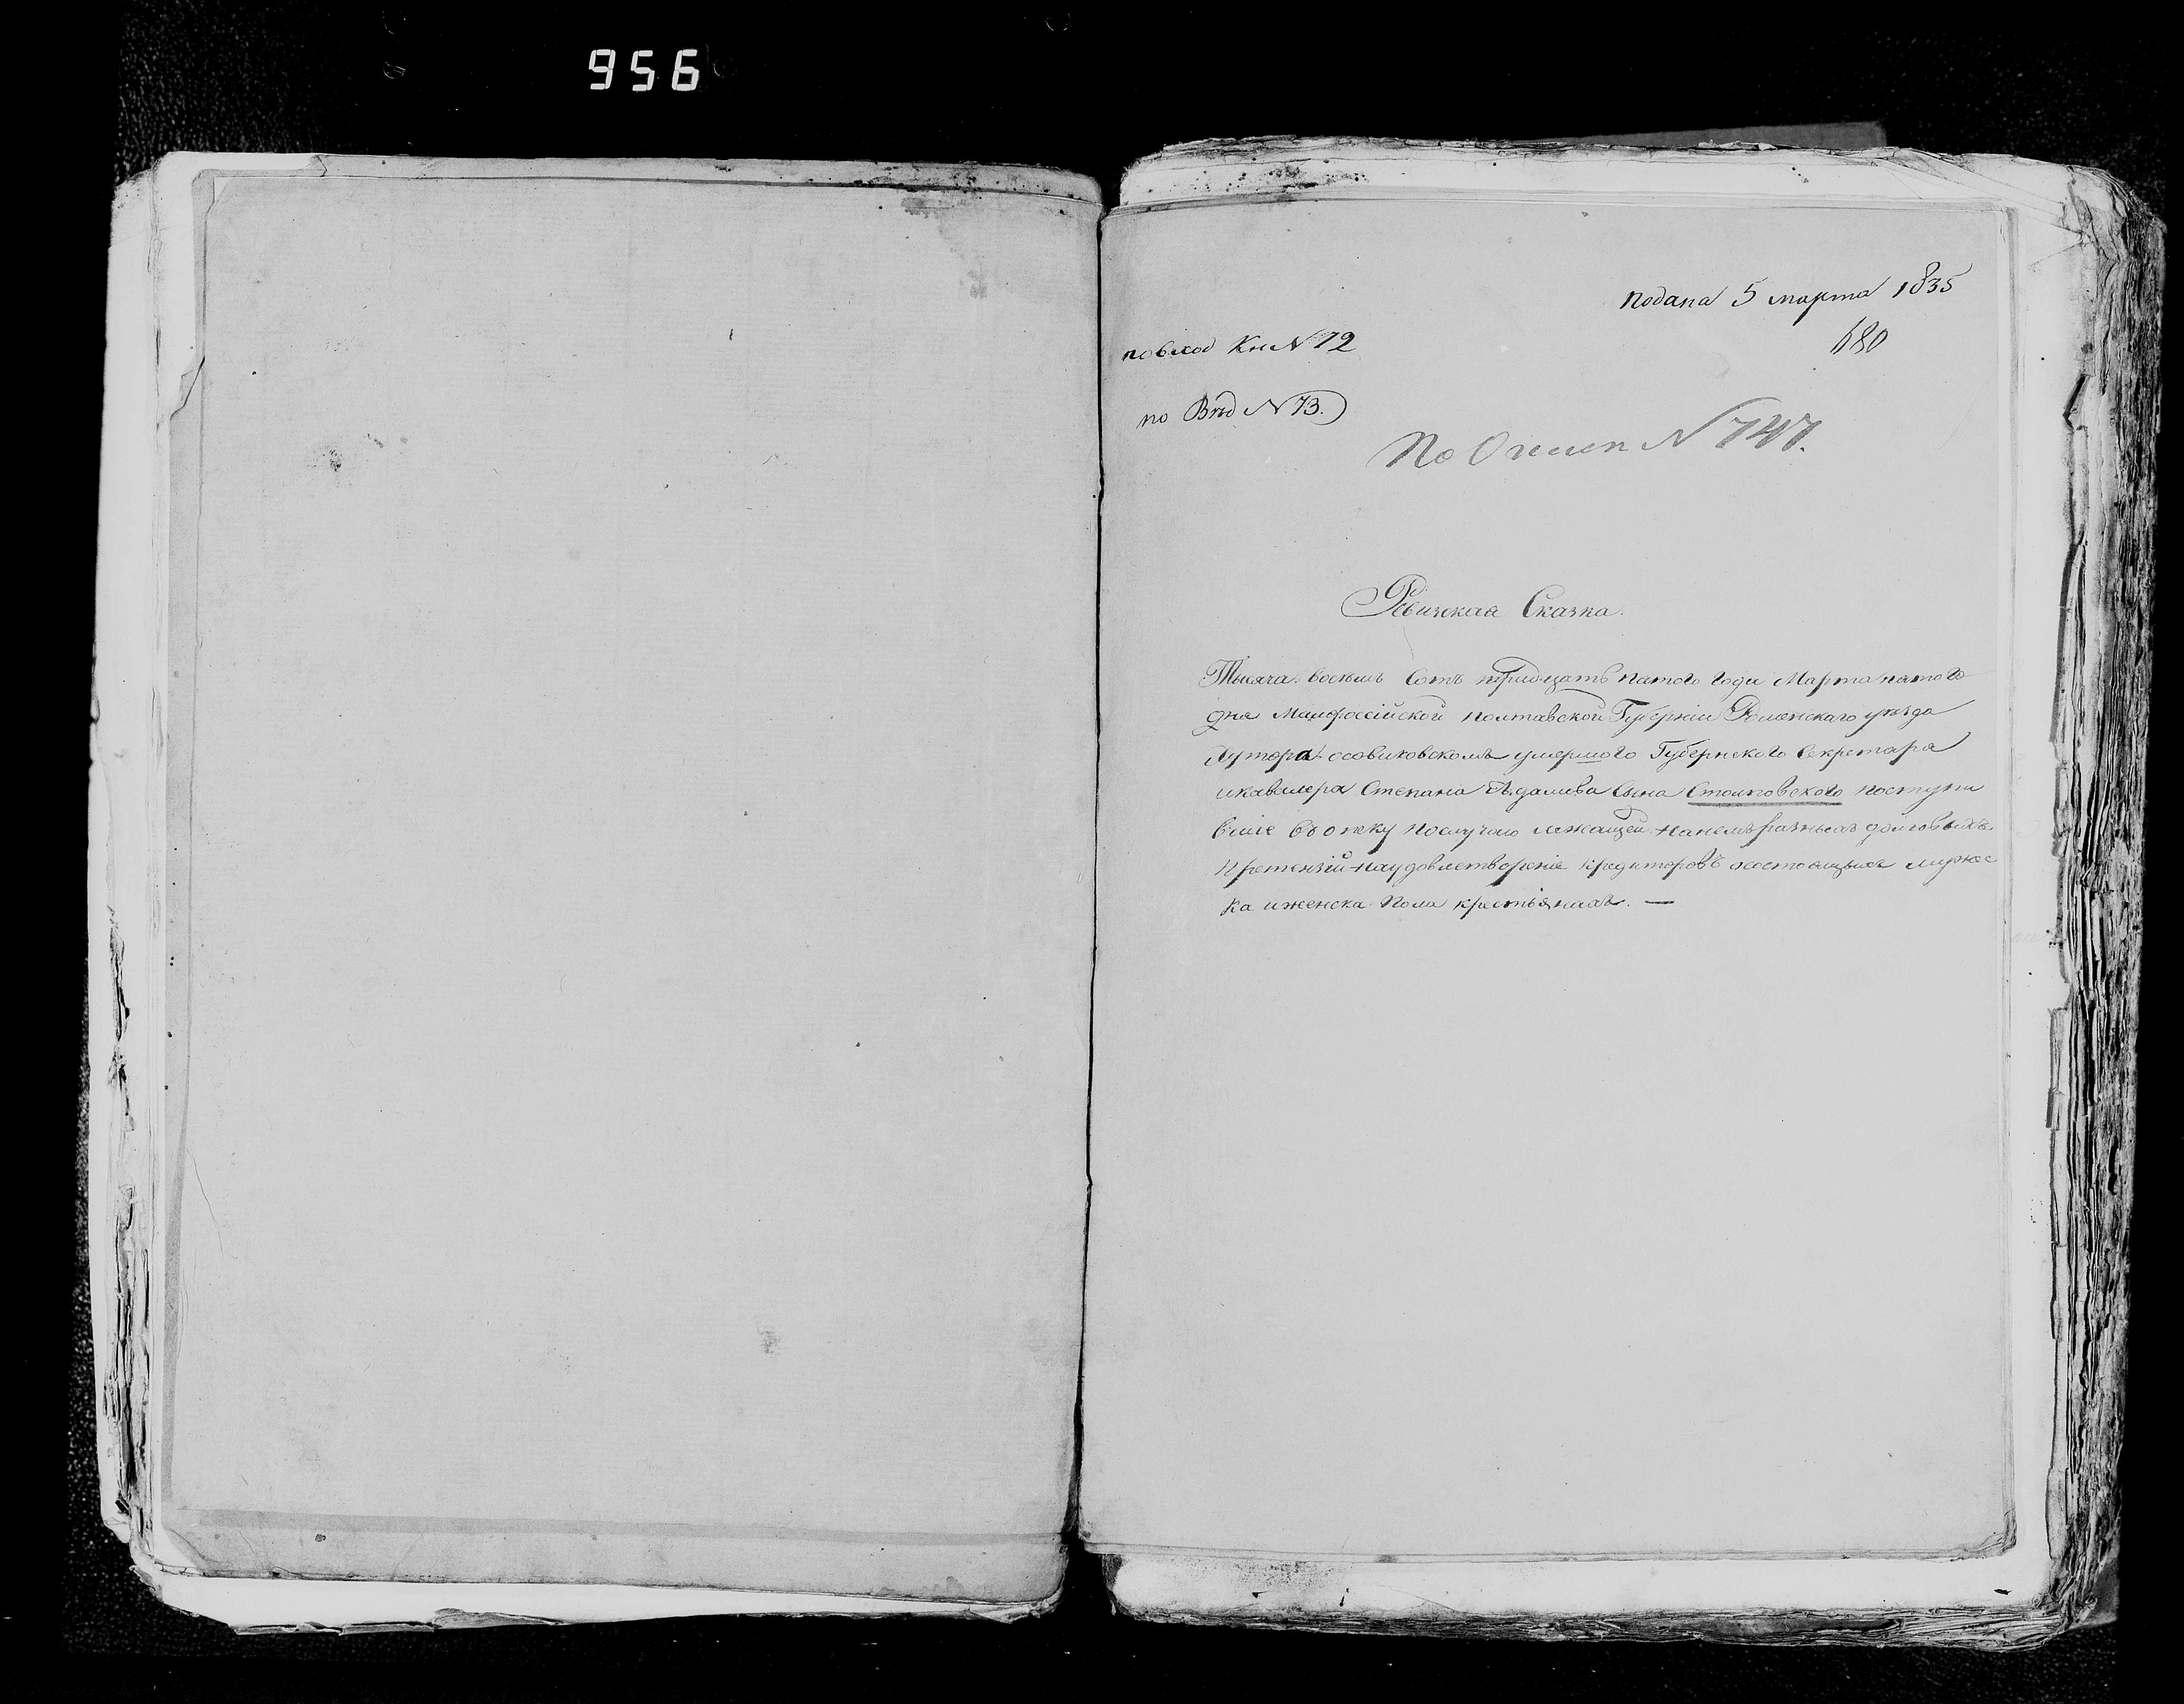 956
подана 5 марта 1835
680
по вход Кн № 72
по Вѣд № 73.
По Описи № 747.
Ревижкая Сказка.
Тысяча восемь Сотъ тридцать пятого года Марта пятого
дня Малороссійской полтавской Губерніи Роменскаго уѣзда
Хутора осовиковскомъ умершого Губернского Секретара
икавалера Степана Адамива Сына Столповского поступи
вшие въ опеку послучаю лежащей нанемъ разныхъ долговыхъ
претензій наудовлетвореніе кредиторовъ осостоящихъ мужес
ка иженска пола крестьянахъ. —